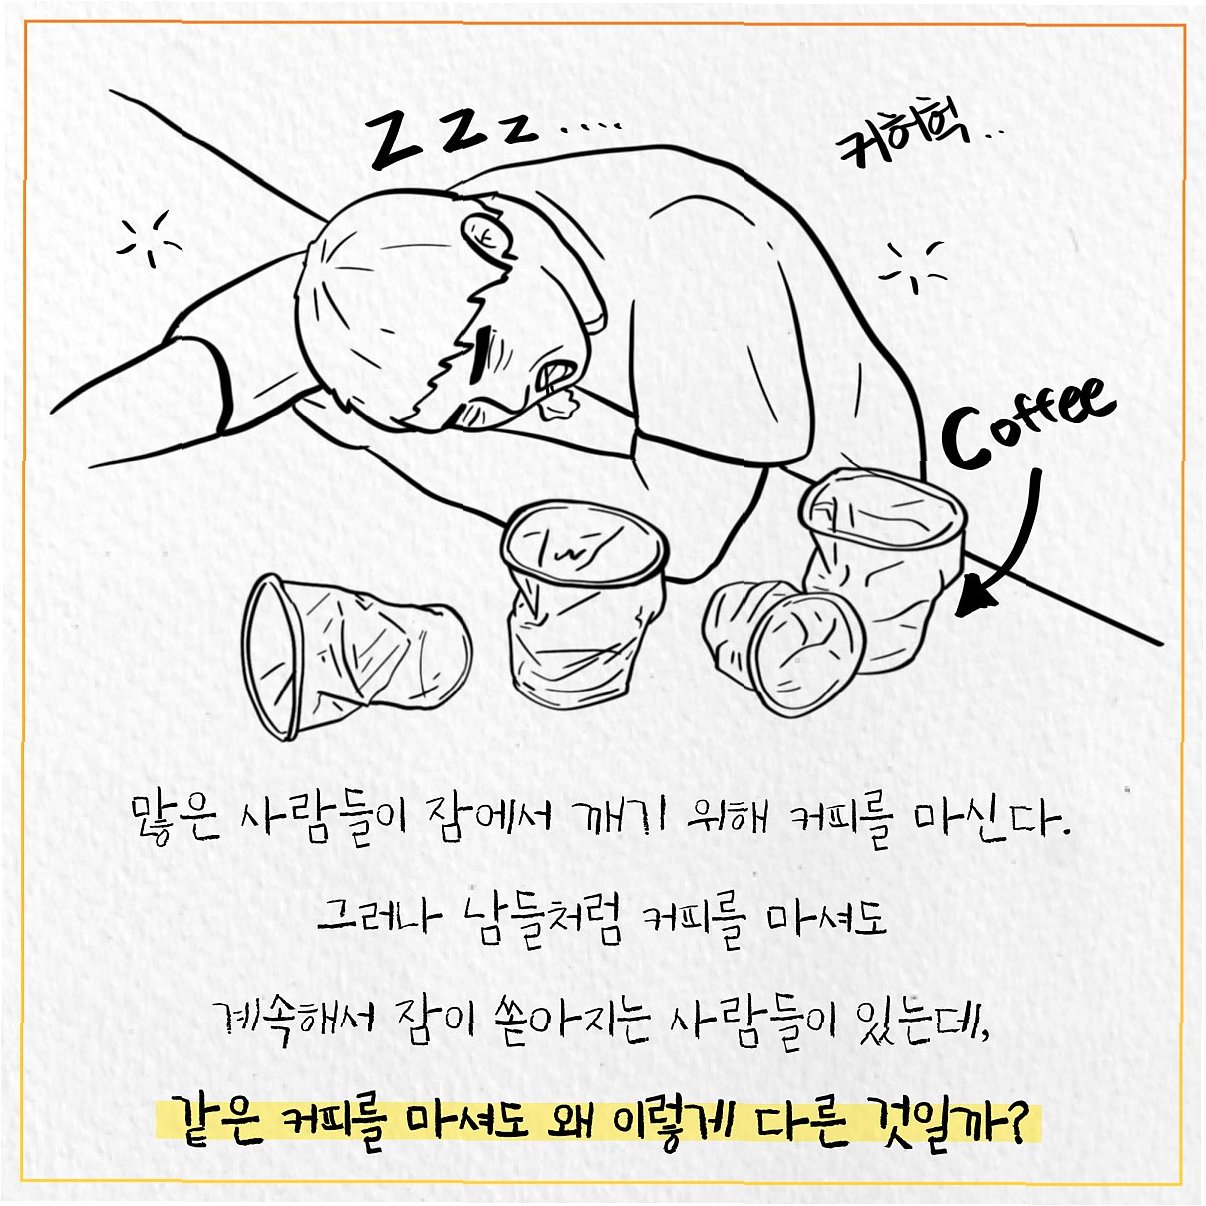 ZZZ....
커허헉..
Coffee
많은 사람들이 잠에서 깨기 위해 커피를 마신다.
그러나 남들처럼 커피를 마셔도
계속해서 잠이 쏟아지는 사람들이 있는데,
같은 커피를 마셔도 왜 이렇게 다른 것일까?